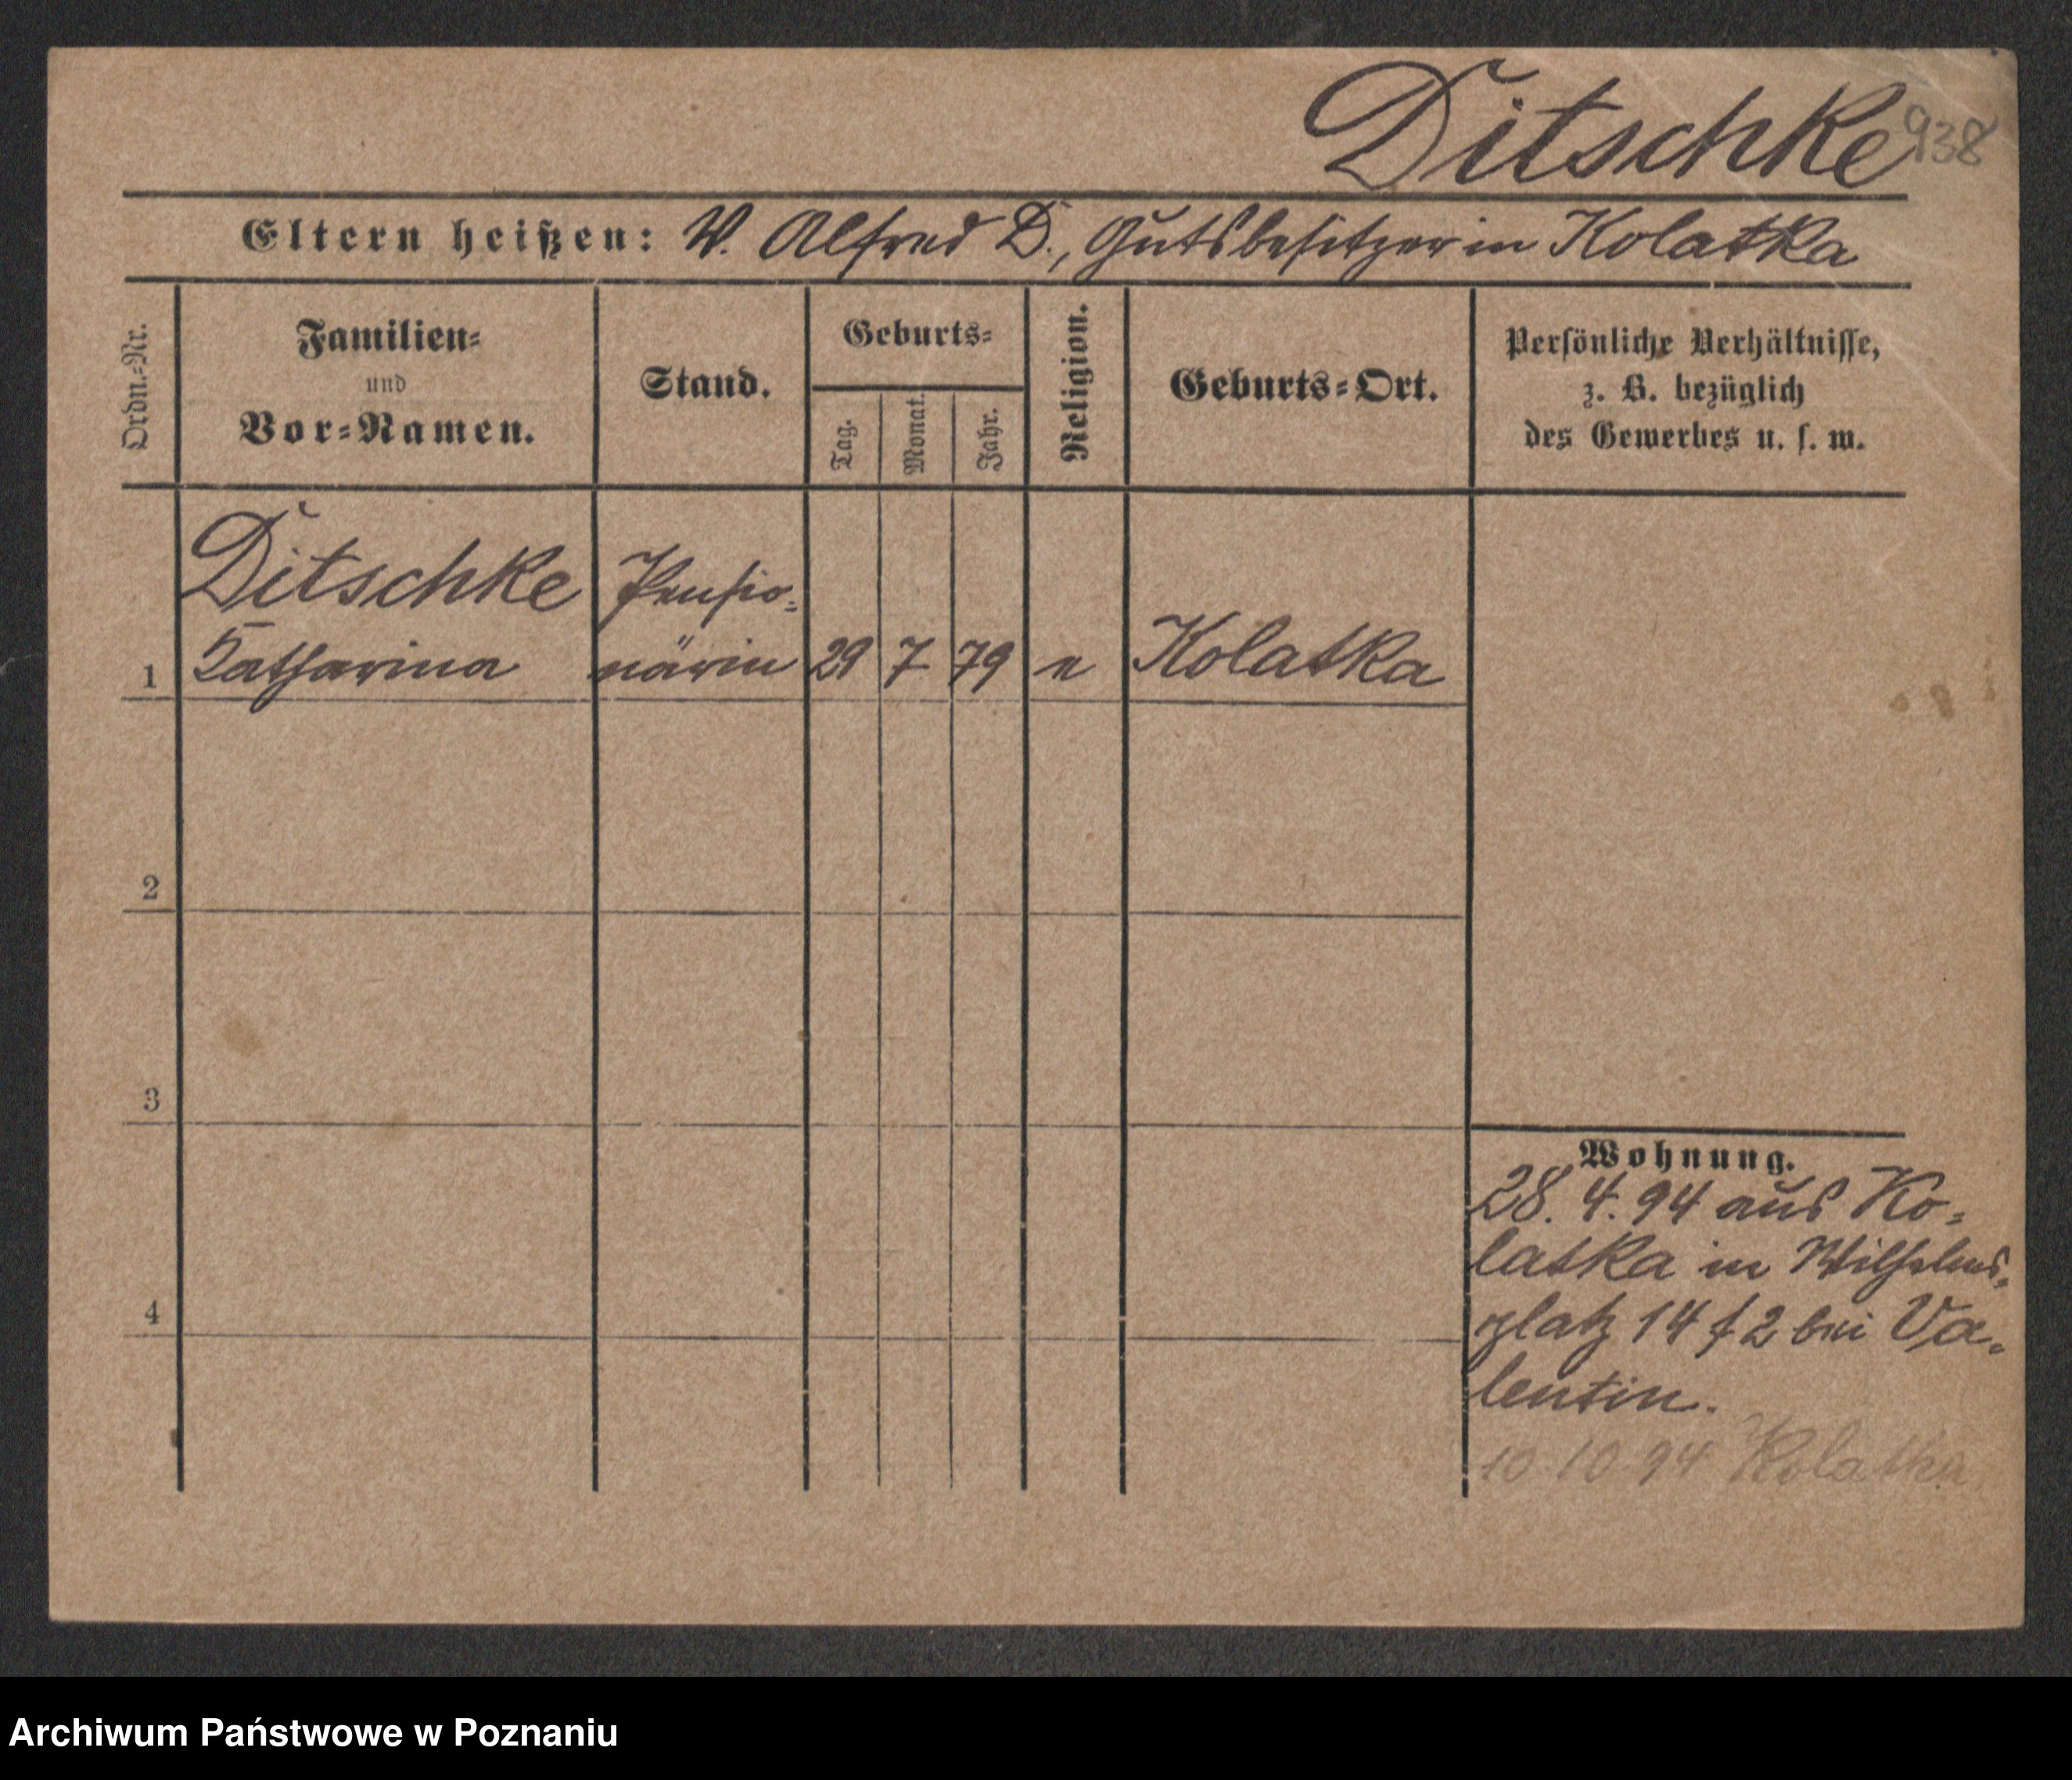 Ditschke 938
Eltern heißen: V. Alfred D., Gutsbesitzer in Kolatka
Ordn.-Nr.
Familien-
und
Vor-Namen.
Stand.
Geburts-
Tag.
Monat.
Jahr.
Religion.
Geburts-Ort.
Persönliche Verhältnisse,
z. B. bezüglich
des Gewerbes u. s. w.
Ditschke Pensio-
1 Katharina närin 29 7 79 e Kolatka
2
3
4
Wohnung.
28. 4. 94 aus Ko-
latka in Wilhelms-
platz 14 f 2 bei Va-
lentin.
10 10 94 Kolatka
Archiwum Państwowe w Poznaniu